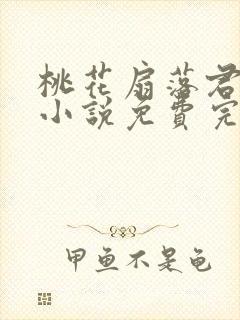 桃花扇落君
小說免費完
甲魚不是龜